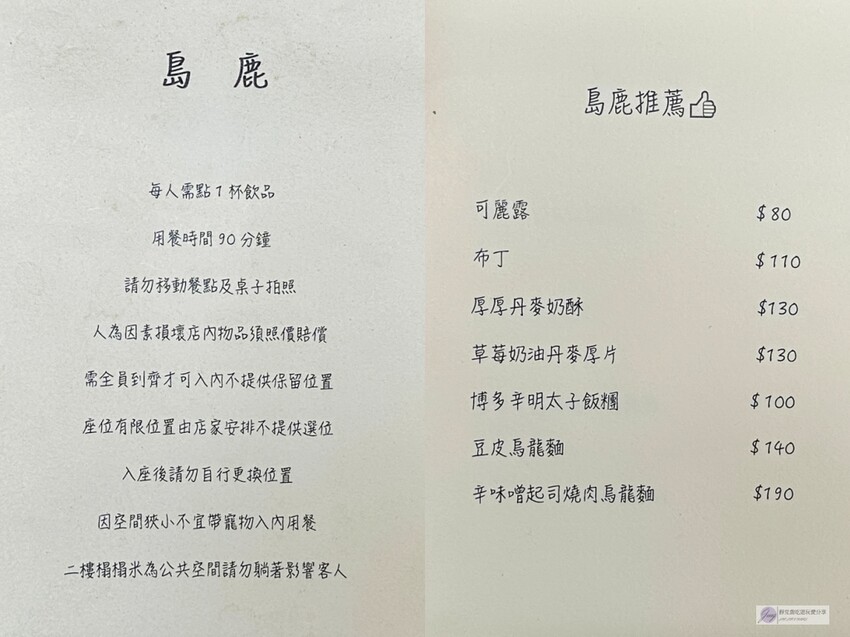 島 鹿
每人需點1杯飲品
用餐時間90分鐘
請勿移動餐點及桌子拍照
人為因素損壞店內物品須照價賠價
需全員到齊才可入內不提供保留位置
座位有限位置由店家安排不提供選位
入座後請勿自行更換位置
因空間狹小不宜帶寵物入內用餐
二樓榻榻米為公共空間請勿躺著影響客人
島鹿推薦
可麗露 $80
布丁 $110
厚厚丹麥奶酥 $130
草莓奶油丹麥厚片 $130
博多辛明太子飯糰 $100
豆皮烏龍麵 $140
辛味噌起司燒肉烏龍麵 $190